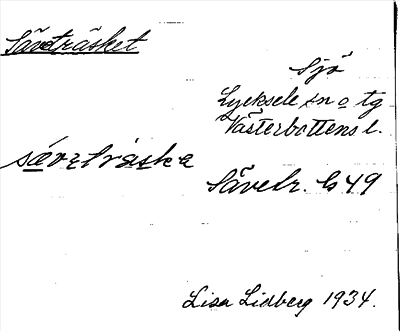 Sävträsket
Sjö
Lycksele sn o tg
Västerbottens l.
Sävetr. G 49
Lisa Lidberg 1934.